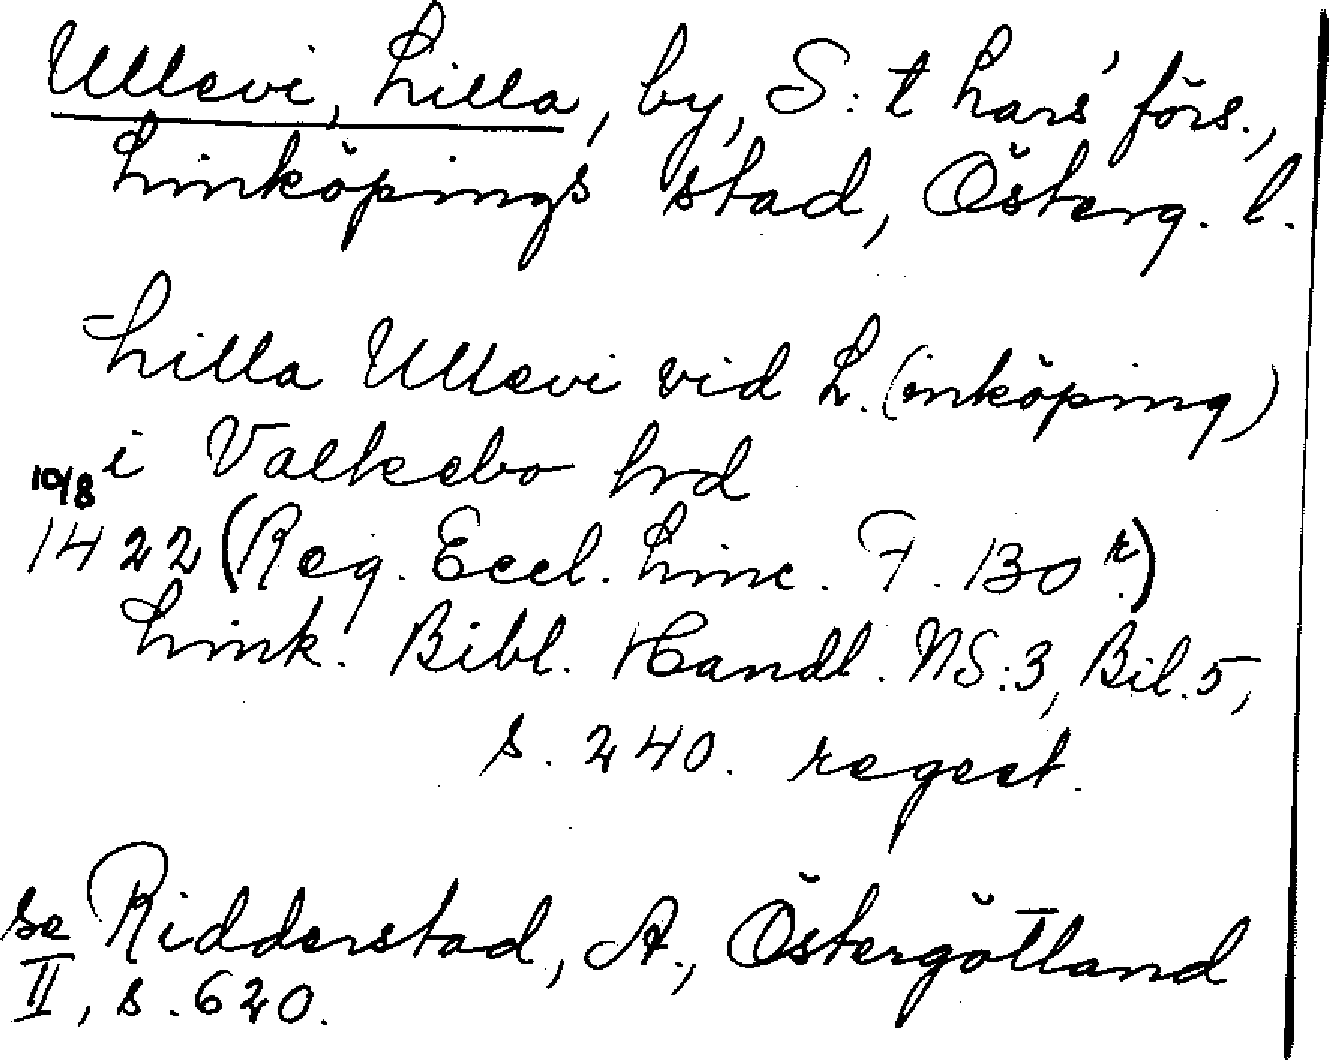 Ullevi, Lilla, by, S:t Lars' förs.,
Linköpings stad, Österg. l.
Lilla Ullevi vid L.(inköping)
i Valkebo hrd
10/8
1422 (Reg. Eccl. Linc. F. 130 r.)
Link. Bibl. Handl. NS:3, Bil. 5,
s. 240. regest.
se Ridderstad, A., Östergötland
II, s. 620.